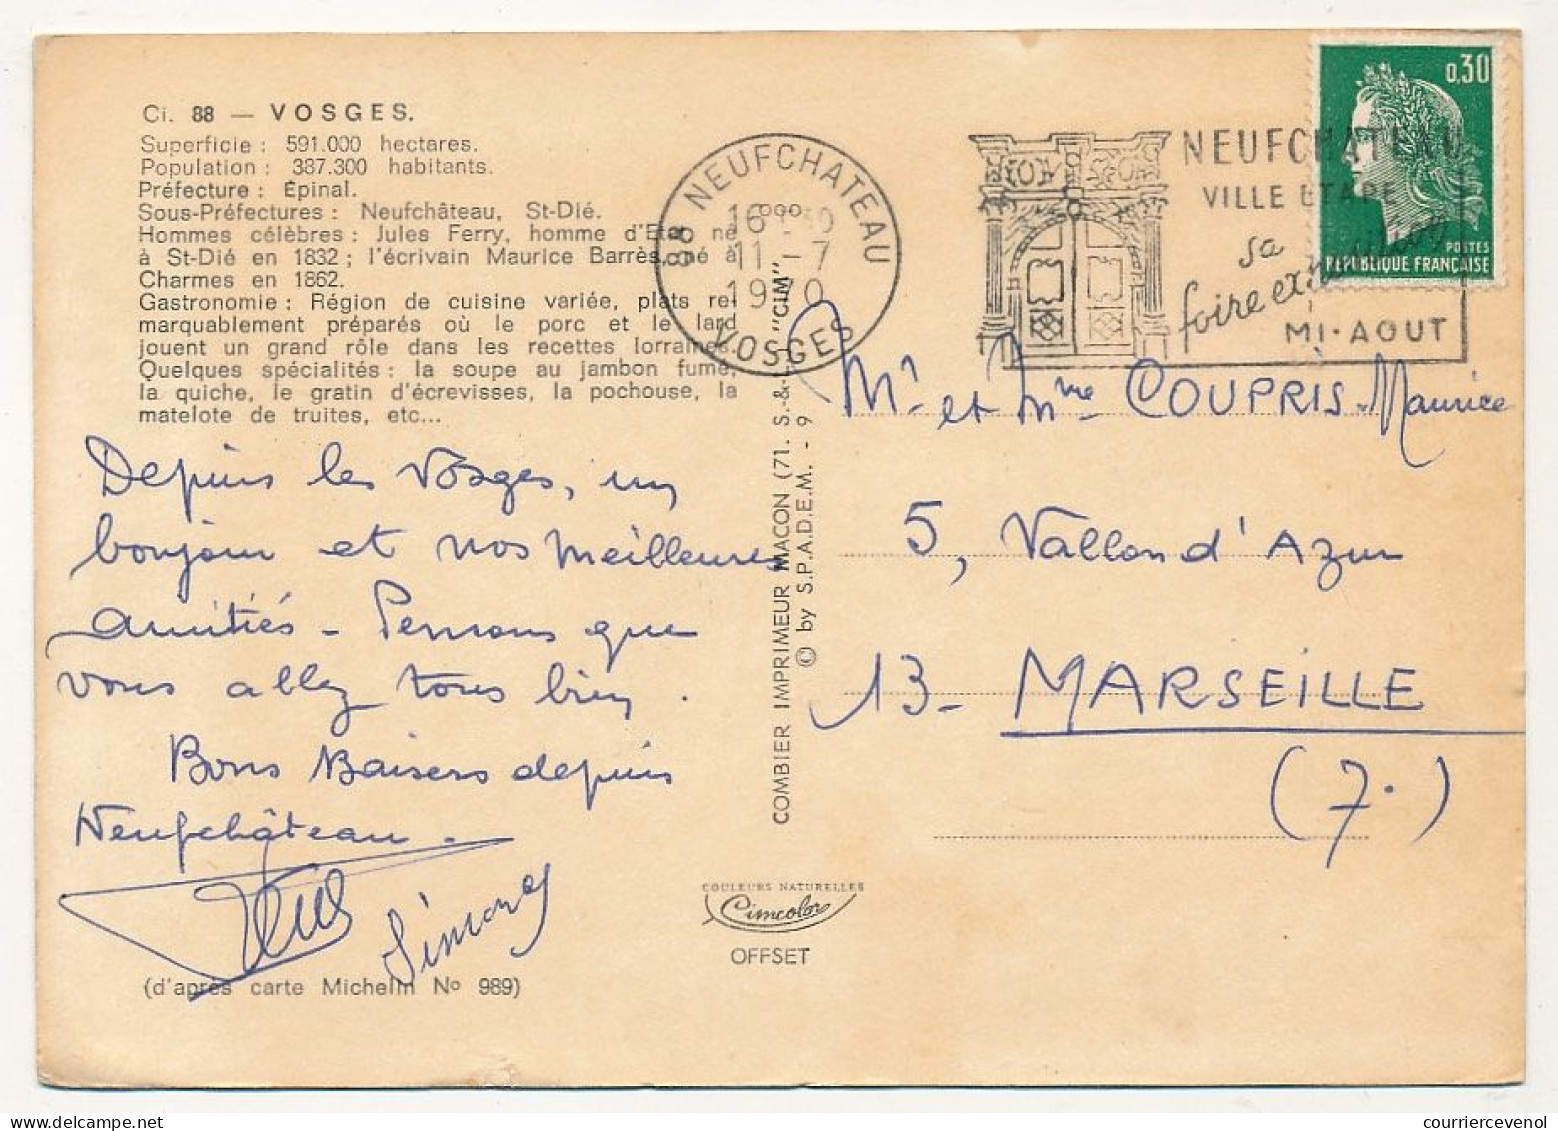 Ci. 88 — VOSGES.
Superficie : 591.000 hectares.
Population : 387.300 habitants.
Préfecture : Épinal.
Sous-Préfectures : Neufchâteau, St-Dié.
Hommes célèbres : Jules Ferry, homme d'Etat né
à St-Dié en 1832 ; l'écrivain Maurice Barrès, né à
Charmes en 1862.
Gastronomie : Région de cuisine variée, plats re-
marquablement préparés où le porc et le lard
jouent un grand rôle dans les recettes lorraines.
Quelques spécialités : la soupe au jambon fumé,
la quiche, le gratin d'écrevisses, la pochouse, la
matelote de truites, etc...
Depuis les Vosges, un
bonjour et nos meilleures
amitiés - Pensons que
vous allez tous bien.
Bons Baisers depuis
Neufchâteau -
Simone
(d'après carte Michelin No 989)
COMBIER IMPRIMEUR MACON (71. S.-&-L.) "CIM"
© by S.P.A.D.E.M. - 9
COULEURS NATURELLES
Cimcolor
OFFSET
88 NEUFCHATEAU
11 - 7
1970
VOSGES
NEUFCHATEAU
VILLE ETAPE
sa
foire exposition
MI-AOUT
0,30
POSTES
REPUBLIQUE FRANÇAISE
Mr et Mme COUPRIS Maurice
5, Vallon d'Azur
13 - MARSEILLE
(7.)
courriercevenol